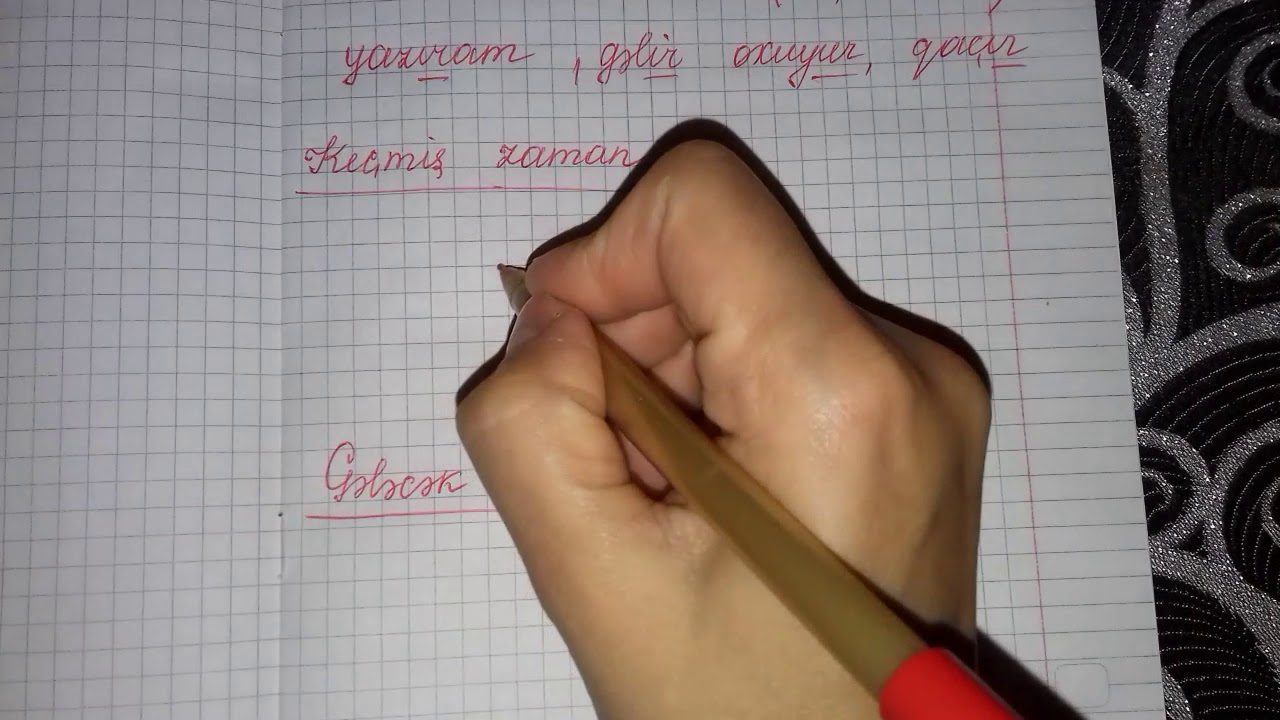 yazıram , gəlir oxuyur, qaçır
Keçmiş zaman
Gələcək